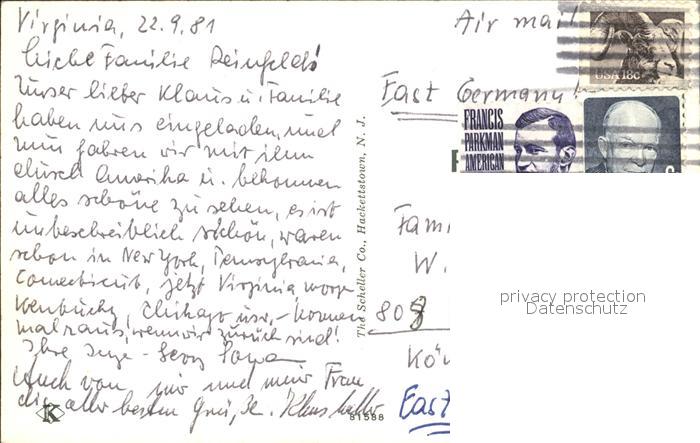 Virginia, 22.9.81
Liebe Familie Reinfeld!
Unser lieber Klaus u. Familie
haben uns eingeladen, und
nun fahren wir mit ihm
durch Amerika u. bekommen
alles schöne zu sehen, es ist
unbeschreiblich schön, waren
schon in New York, Pennsylvania,
Connecticut, jetzt Virginia morge
Kentucky, Chikago usw, - kommen
mal raus, wenn wir zurück sind!
Ihre Inge - Georg
Auch von mir und meiner Frau
die aller besten Grüße. Klaus
The Scheller Co., Hackettstown, N. J.
K
81588
Air mail
USA 18c
East Germany!
FRANCIS
PARKMAN
AMERICAN
Fam
W.
808
Kö
East
privacy protection
Datenschutz